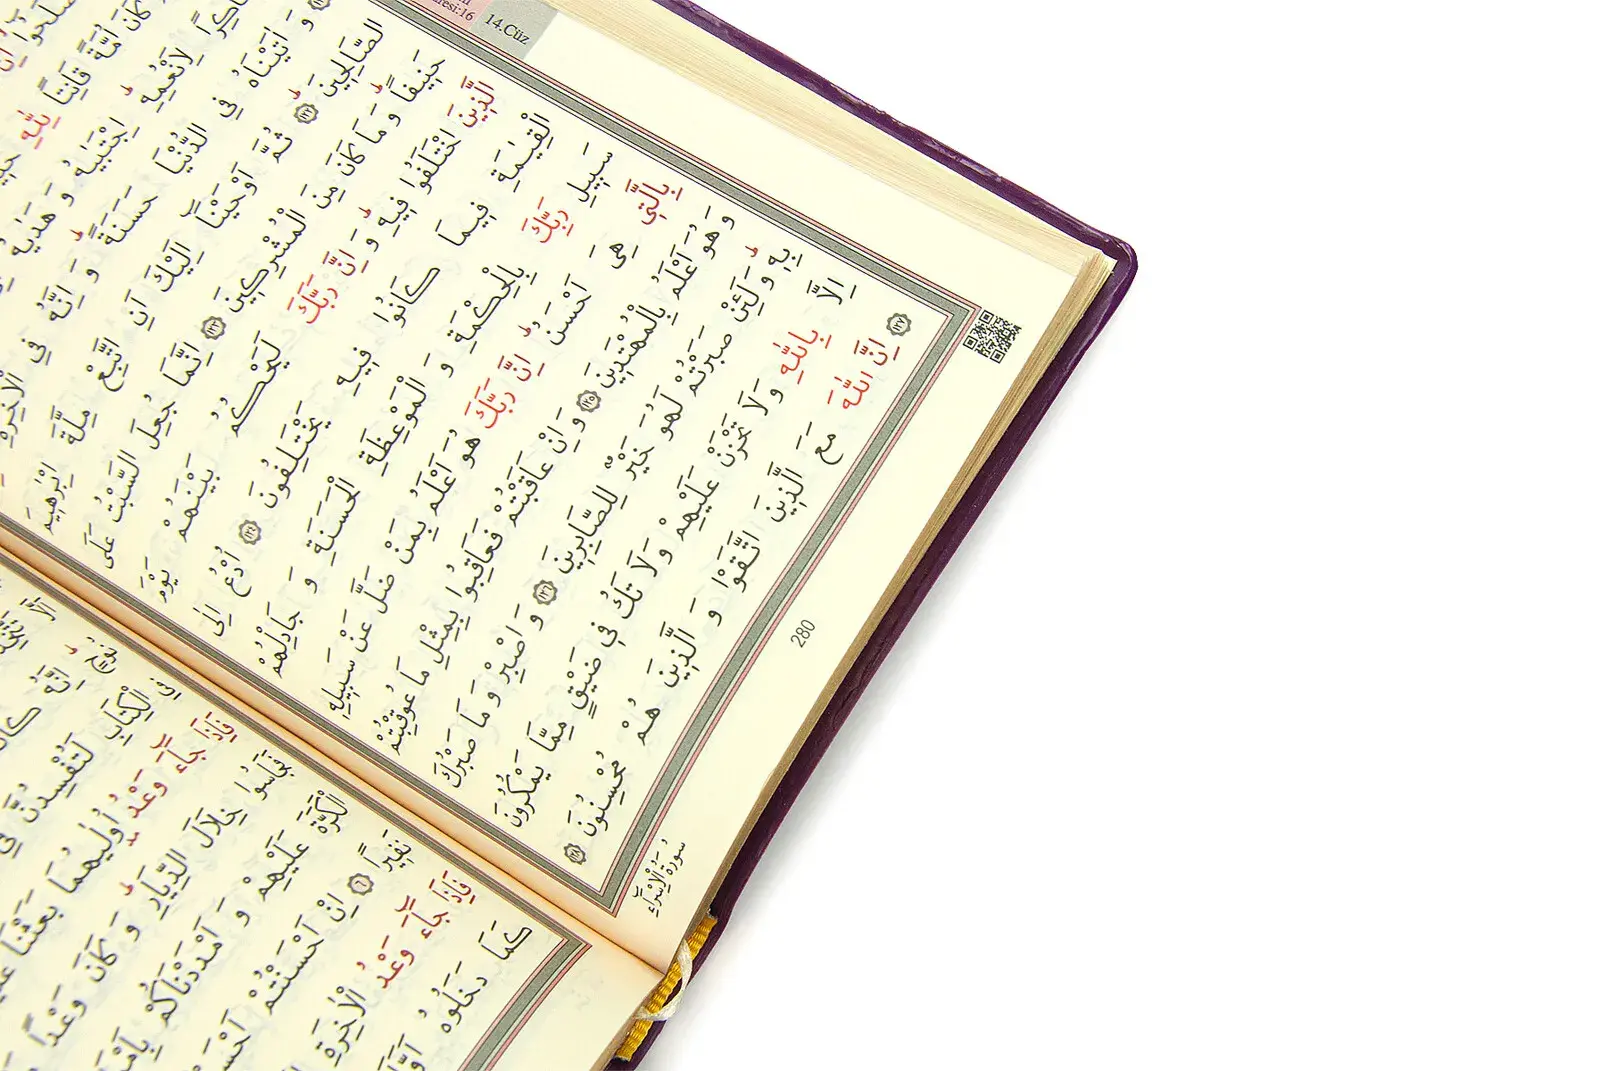 14.Cüz
كَانَ اُمَّةً قَانِتًا لِلّٰهِ
شَاكِرًا لِاَنْعُمِهِ اِجْتَبٰيهُ وَهَدٰيهُ
وَاٰتَيْنَاهُ فِي الدُّنْيَا حَسَنَةً وَاِنَّهُ فِي الْاٰخِرَةِ
الصَّالِحِينَ ١٢٢ ثُمَّ اَوْحَيْنَا اِلَيْكَ اَنِ اتَّبِعْ مِلَّةَ اِبْرٰهِيمَ
حَنِيفًا وَمَا كَانَ مِنَ الْمُشْرِكِينَ ١٢٣ اِنَّمَا جُعِلَ السَّبْتُ عَلَى
الَّذِينَ اخْتَلَفُوا فِيهِ وَاِنَّ رَبَّكَ لَيَحْكُمُ بَيْنَهُمْ يَوْمَ
الْقِيٰمَةِ فِيمَا كَانُوا فِيهِ يَخْتَلِفُونَ ١٢٤ اُدْعُ اِلٰى
سَبِيلِ رَبِّكَ بِالْحِكْمَةِ وَالْمَوْعِظَةِ الْحَسَنَةِ وَجَادِلْهُمْ
بِالَّتِي هِيَ اَحْسَنُ اِنَّ رَبَّكَ هُوَ اَعْلَمُ بِمَنْ ضَلَّ عَنْ سَبِيلِهِ
وَهُوَ اَعْلَمُ بِالْمُهْتَدِينَ ١٢٥ وَاِنْ عَاقَبْتُمْ فَعَاقِبُوا بِمِثْلِ مَا عُوقِبْتُمْ
بِهِ وَلَئِنْ صَبَرْتُمْ لَهُوَ خَيْرٌ لِلصَّابِرِينَ ١٢٦ وَاصْبِرْ وَمَا صَبْرُكَ
اِلَّا بِاللّٰهِ وَلَا تَحْزَنْ عَلَيْهِمْ وَلَا تَكُ فِي ضَيْقٍ مِمَّا يَمْكُرُونَ
١٢٧ اِنَّ اللّٰهَ مَعَ الَّذِينَ اتَّقَوْا وَالَّذِينَ هُمْ مُحْسِنُونَ ١٢٨
280
سُورَةُ الْاِسْرَاءِ
الْكِتَابِ لَتُفْسِدُنَّ فِي
فَاِذَا جَاءَ وَعْدُ اُولٰيهُمَا بَعَثْنَا
فَجَاسُوا خِلَالَ الدِّيَارِ وَكَانَ وَعْدًا
الْكَرَّةَ عَلَيْهِمْ وَاَمْدَدْنَاكُمْ
نَفِيرًا ٦ اِنْ اَحْسَنْتُمْ
فَاِذَا جَاءَ وَعْدُ الْاٰخِرَةِ
كَمَا دَخَلُوهُ